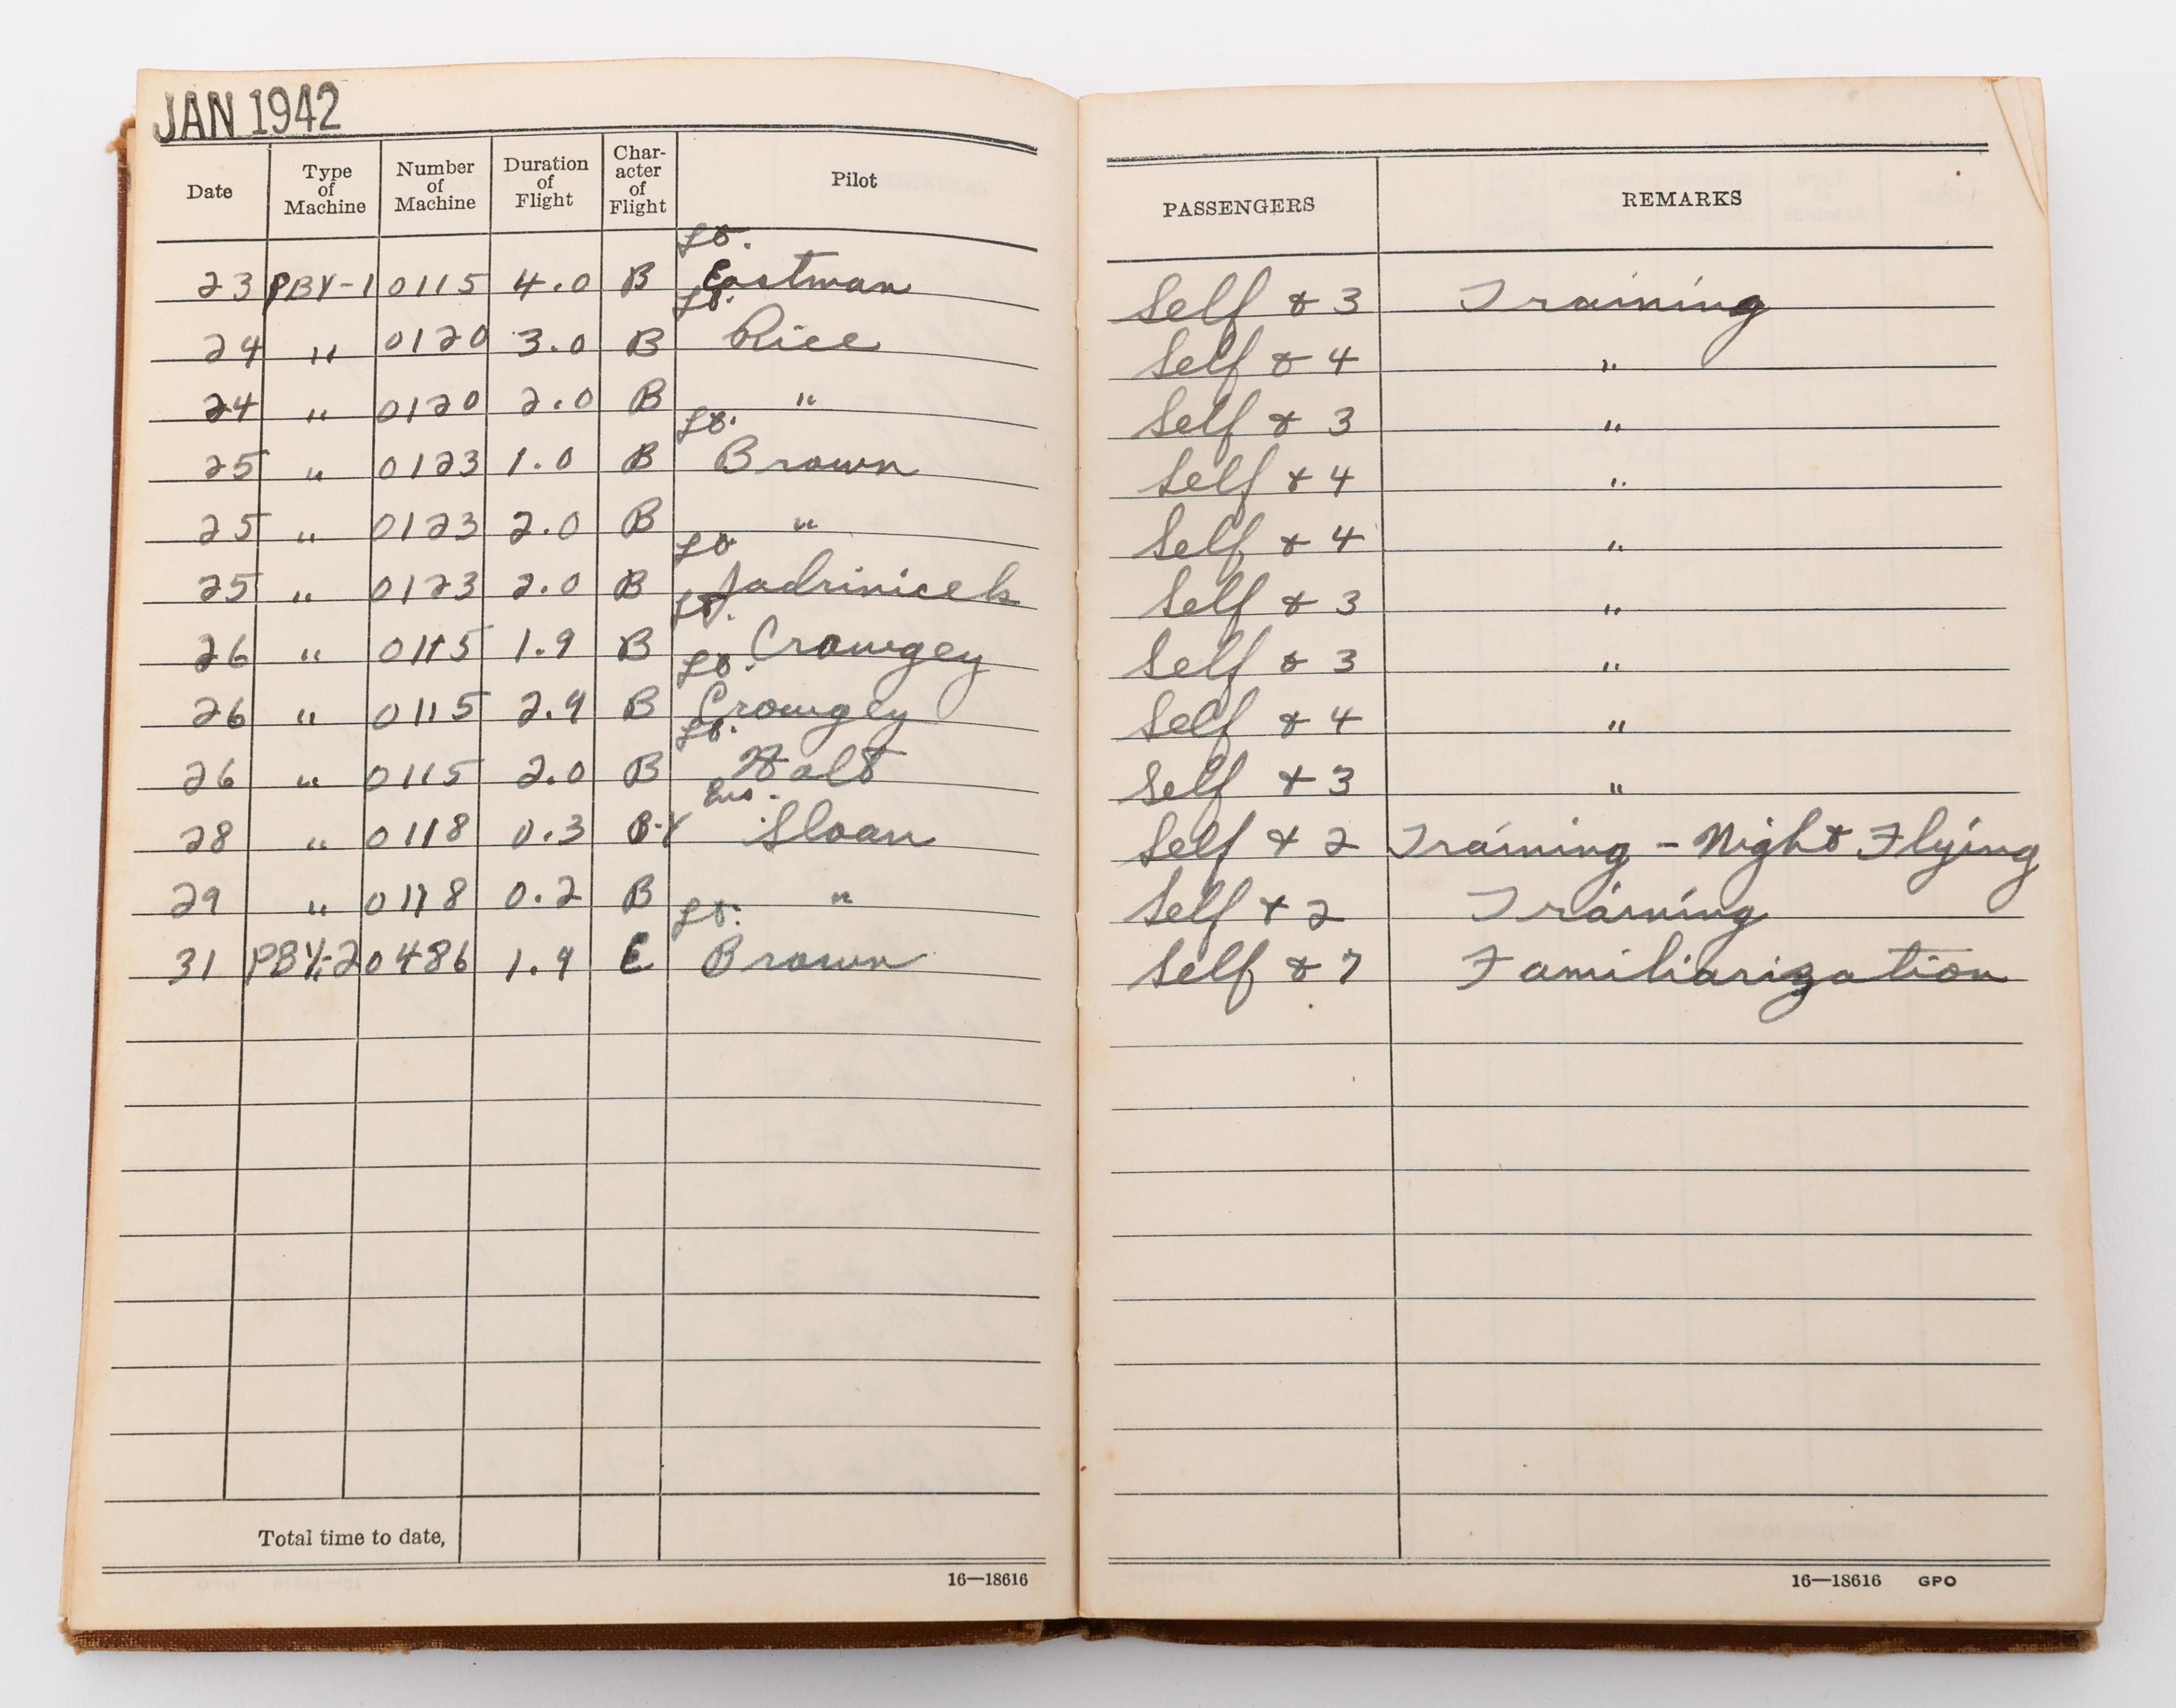 JAN 1942
Date Type of Machine Number of Machine Duration of Flight Char-acter of Flight Pilot PASSENGERS REMARKS
23 PBY-1 0115 4.0 B Lt. Eastman Self & 3 Training
24 " 0120 3.0 B Lt. Rice Self & 4 "
24 " 0120 2.0 B " Self & 3 "
25 " 0123 1.0 B Lt. Brown Self & 4 "
25 " 0123 2.0 B " Self & 4 "
25 " 0123 2.0 B Lt. Jadrinicek Self & 3 "
26 " 0115 1.9 B Lt. Crowgey Self & 3 "
26 " 0115 2.9 B Lt. Crowgey Self & 4 "
26 " 0115 2.0 B Lt. Holt Self & 3 "
28 " 0118 0.3 B-Y Ens. Sloan Self & 2 Training - Night Flying
29 " 0118 0.2 B " Self & 2 Training
31 PBY-2 0486 1.9 E Lt. Brown Self & 7 Familiarization
Total time to date,
16—18616
16—18616 GPO